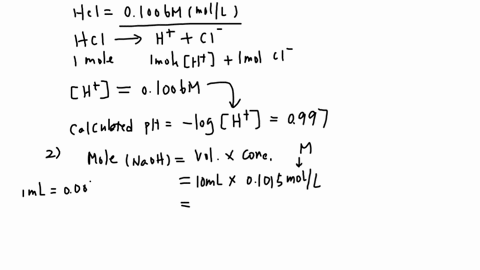 HCl = 0.1006M (mol/L)
HCl → H⁺ + Cl⁻
1 mole 1mol [H⁺] + 1mol Cl⁻
[H⁺] = 0.1006M
Calculated pH = -log [H⁺] = 0.997
2) Mole (NaOH) = Vol. x Conc. M
1mL = 0.00
= 10mL x 0.1015 mol/L
=